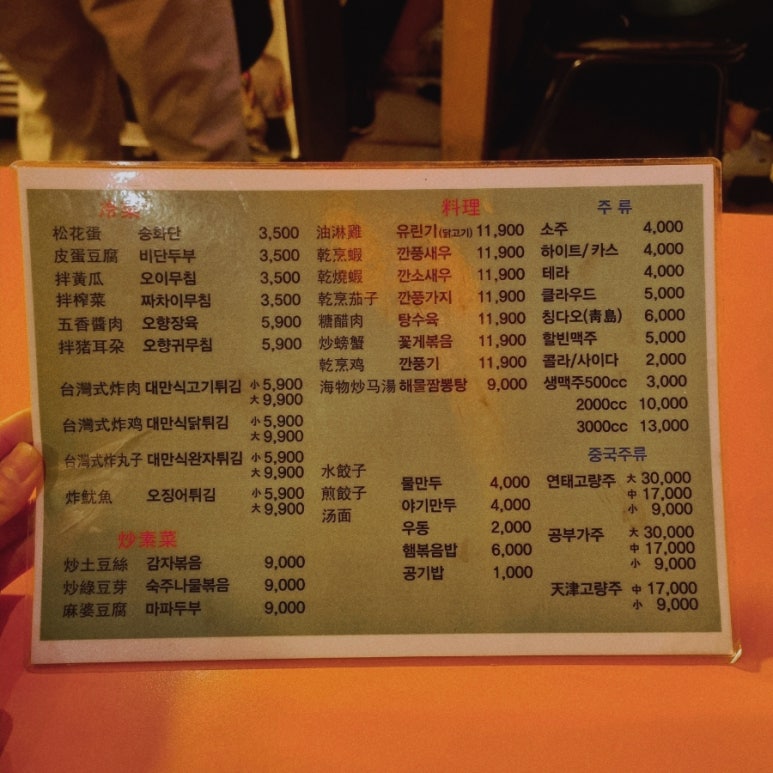 冷菜
松花蛋 송화단 3,500
皮蛋豆腐 비단두부 3,500
拌黃瓜 오이무침 3,500
拌榨菜 짜차이무침 3,500
五香醬肉 오향장육 5,900
拌猪耳朶 오향귀무침 5,900
台灣式炸肉 대만식고기튀김 小 5,900
大 9,900
台灣式炸鸡 대만식닭튀김 小 5,900
大 9,900
台灣式炸丸子 대만식완자튀김 小 5,900
大 9,900
炸魷魚 오징어튀김 小 5,900
大 9,900
炒素菜
炒土豆絲 감자볶음 9,000
炒綠豆芽 숙주나물볶음 9,000
麻婆豆腐 마파두부 9,000
料理
油淋雞 유린기(닭고기) 11,900
乾烹蝦 깐풍새우 11,900
乾燒蝦 깐소새우 11,900
乾烹茄子 깐풍가지 11,900
糖醋肉 탕수육 11,900
炒螃蟹 꽃게볶음 11,900
乾烹鸡 깐풍기 11,900
海物炒马湯 해물짬뽕탕 9,000
水餃子 물만두 4,000
煎餃子 야기만두 4,000
汤面 우동 2,000
햄볶음밥 6,000
공기밥 1,000
주류
소주 4,000
하이트/카스 4,000
테라 4,000
클라우드 5,000
칭다오(靑島) 6,000
할빈맥주 5,000
콜라/사이다 2,000
생맥주500cc 3,000
2000cc 10,000
3000cc 13,000
중국주류
연태고량주 大 30,000
中 17,000
小 9,000
공부가주 大 30,000
中 17,000
小 9,000
天津고량주 中 17,000
小 9,000